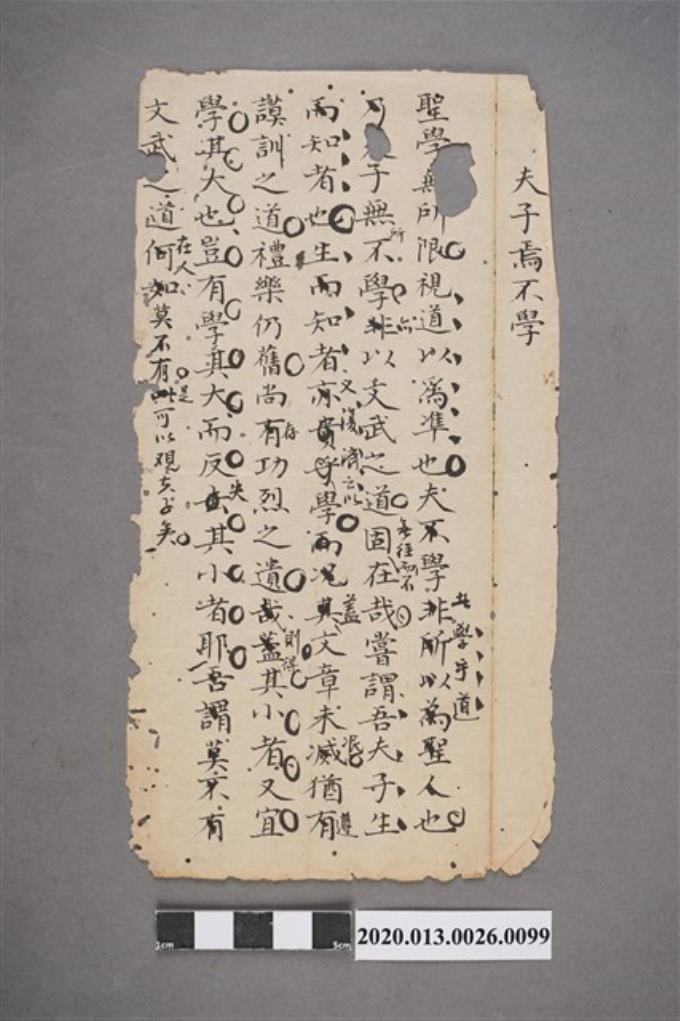 夫子焉不學
聖學無所限視道以為準也夫不學非所以為聖人也
乃子無不學非以文武之道固在哉嘗謂吾夫子生
而知者也生而知者亦貴乎學而况其文章未滅猶有
謨訓之道禮樂仍舊尚有功烈之遺哉蓋其小者又宜
學其大也豈有學其大而反去其小者耶吾謂莫不有
文武之道何如莫不有此可以觀夫子矣
其學乎道
所
無往而不
又復濟之以
蓋
泯
遵
存
則得
失
在人
是
2020.013.0026.0099
1cm
5cm